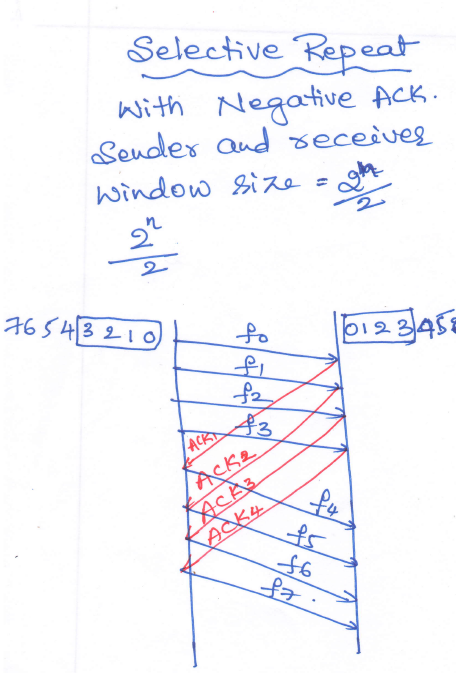 Selective Repeat
With Negative ACK.
Sender and receiver
window size = 2^n/2
2^n/2
7654 3210
0123 458
f0
f1
f2
f3
ACK1
ACK2
ACK3
ACK4
f4
f5
f6
f7.